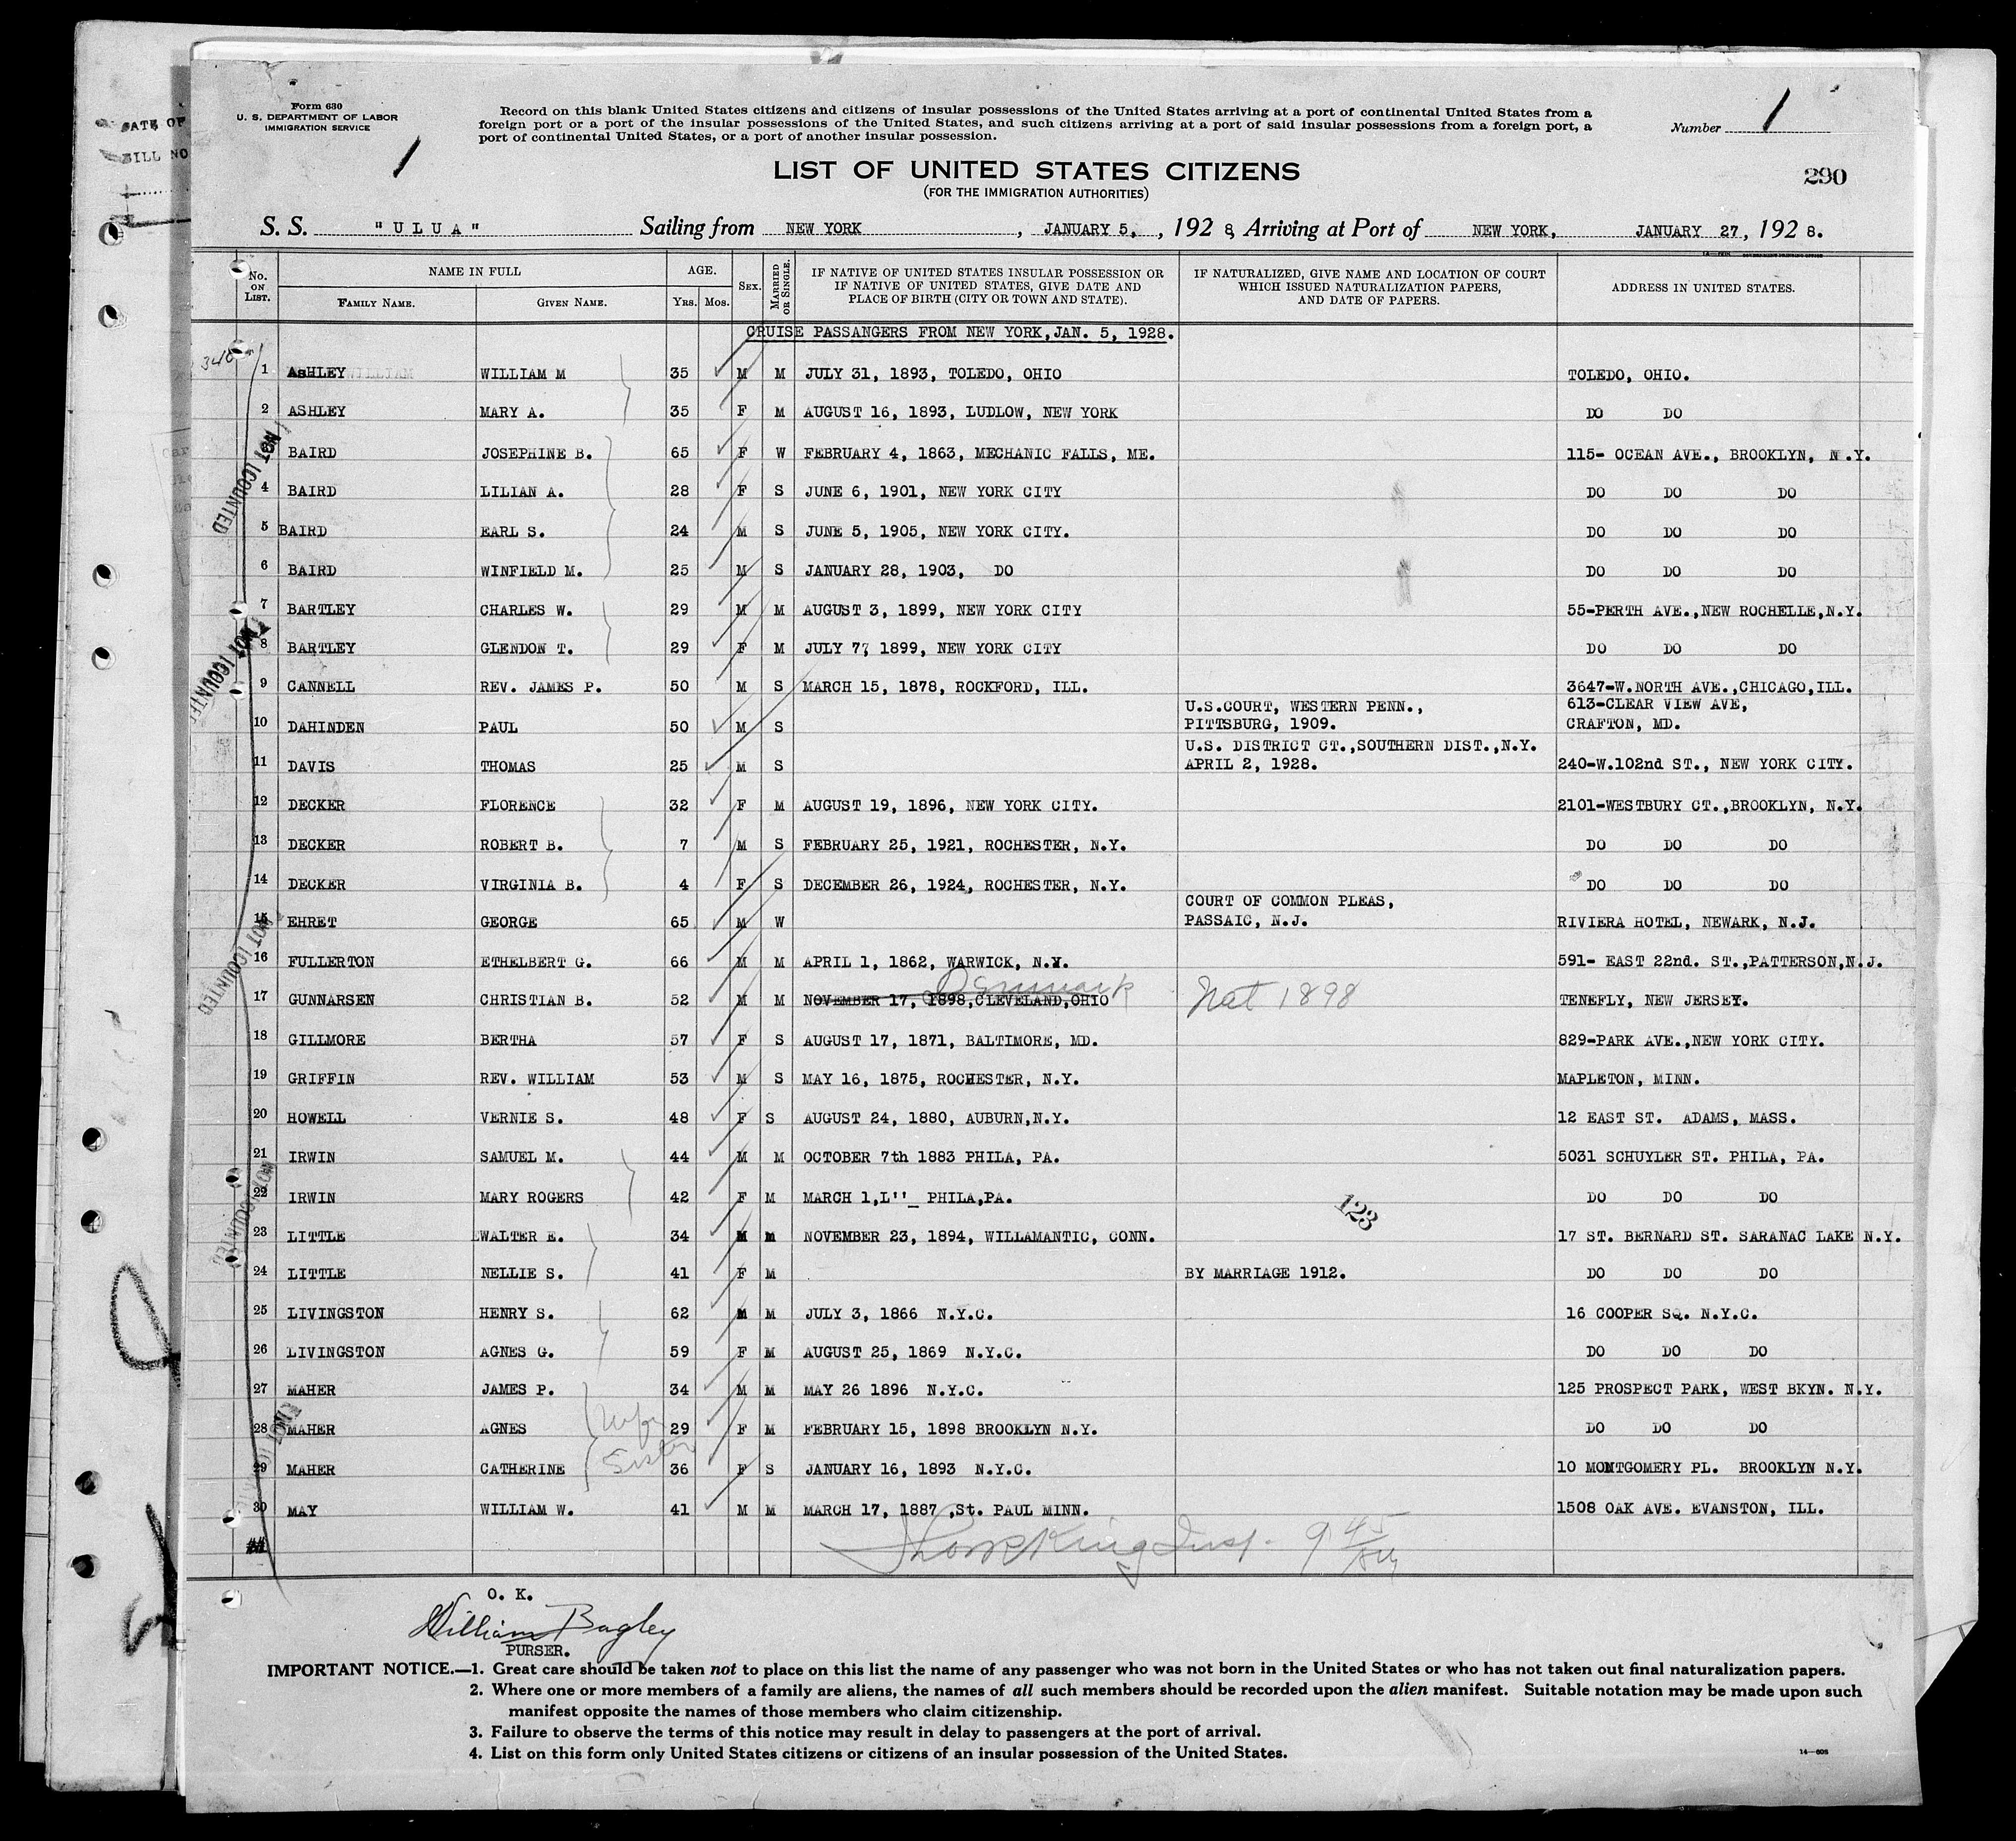 Form 630
U. S. DEPARTMENT OF LABOR
IMMIGRATION SERVICE
1
Record on this blank United States citizens and citizens of insular possessions of the United States arriving at a port of continental United States from a
foreign port or a port of the insular possessions of the United States, and such citizens arriving at a port of said insular possessions from a foreign port, a
port of continental United States, or a port of another insular possession.
Number 1
LIST OF UNITED STATES CITIZENS
(FOR THE IMMIGRATION AUTHORITIES)
290
S. S. "ULUA" Sailing from NEW YORK, JANUARY 5, , 1928, Arriving at Port of NEW YORK, JANUARY 27, 1928.
No. ON LIST. NAME IN FULL FAMILY NAME. GIVEN NAME. AGE. Yrs. Mos. SEX. MARRIED OR SINGLE. IF NATIVE OF UNITED STATES INSULAR POSSESSION OR IF NATIVE OF UNITED STATES, GIVE DATE AND PLACE OF BIRTH (CITY OR TOWN AND STATE). IF NATURALIZED, GIVE NAME AND LOCATION OF COURT WHICH ISSUED NATURALIZATION PAPERS, AND DATE OF PAPERS. ADDRESS IN UNITED STATES.
CRUISE PASSANGERS FROM NEW YORK,JAN. 5, 1928.
1 ASHLEY WILLIAM M 35 M M JULY 31, 1893, TOLEDO, OHIO TOLEDO, OHIO.
2 ASHLEY MARY A. 35 F M AUGUST 16, 1893, LUDLOW, NEW YORK DO DO
BAIRD JOSEPHINE B. 65 F W FEBRUARY 4, 1863, MECHANIC FALLS, ME. 115- OCEAN AVE., BROOKLYN, N.Y.
4 BAIRD LILIAN A. 28 F S JUNE 6, 1901, NEW YORK CITY DO DO DO
5 BAIRD EARL S. 24 M S JUNE 5, 1905, NEW YORK CITY. DO DO DO
6 BAIRD WINFIELD M. 25 M S JANUARY 28, 1903, DO DO DO DO
7 BARTLEY CHARLES W. 29 M M AUGUST 3, 1899, NEW YORK CITY 55-PERTH AVE.,NEW ROCHELLE,N.Y.
8 BARTLEY GLENDON T. 29 F M JULY 7, 1899, NEW YORK CITY DO DO DO
9 CANNELL REV. JAMES P. 50 M S MARCH 15, 1878, ROCKFORD, ILL. 3647-W.NORTH AVE.,CHICAGO,ILL.
U.S.COURT, WESTERN PENN., 613-CLEAR VIEW AVE,
10 DAHINDEN PAUL 50 M S PITTSBURG, 1909. CRAFTON, MD.
U.S. DISTRICT CT.,SOUTHERN DIST.,N.Y.
11 DAVIS THOMAS 25 M S APRIL 2, 1928. 240-W.102nd ST., NEW YORK CITY.
12 DECKER FLORENCE 32 F M AUGUST 19, 1896, NEW YORK CITY. 2101-WESTBURY CT.,BROOKLYN, N.Y.
13 DECKER ROBERT B. 7 M S FEBRUARY 25, 1921, ROCHESTER, N.Y. DO DO DO
14 DECKER VIRGINIA B. 4 F S DECEMBER 26, 1924, ROCHESTER, N.Y. DO DO DO
COURT OF COMMON PLEAS,
15 EHRET GEORGE 65 M W PASSAIC, N.J. RIVIERA HOTEL, NEWARK, N.J.
16 FULLERTON ETHELBERT G. 66 M M APRIL 1, 1862, WARWICK, N.Y. 591- EAST 22nd. ST.,PATTERSON,N.J.
Denmark
17 GUNNARSEN CHRISTIAN B. 52 M M NOVEMBER 17, 1898,CLEVELAND,OHIO Nat 1898 TENEFLY, NEW JERSEY.
18 GILLMORE BERTHA 57 F S AUGUST 17, 1871, BALTIMORE, MD. 829-PARK AVE.,NEW YORK CITY.
19 GRIFFIN REV. WILLIAM 53 M S MAY 16, 1875, ROCHESTER, N.Y. MAPLETON, MINN.
20 HOWELL VERNIE S. 48 F S AUGUST 24, 1880, AUBURN,N.Y. 12 EAST ST. ADAMS, MASS.
21 IRWIN SAMUEL M. 44 M M OCTOBER 7th 1883 PHILA, PA. 5031 SCHUYLER ST. PHILA, PA.
22 IRWIN MARY ROGERS 42 F M MARCH 1,L''_ PHILA,PA. DO DO DO
123
23 LITTLE WALTER E. 34 M M NOVEMBER 23, 1894, WILLAMANTIC, CONN. 17 ST. BERNARD ST. SARANAC LAKE N.Y.
24 LITTLE NELLIE S. 41 F M BY MARRIAGE 1912. DO DO DO
25 LIVINGSTON HENRY S. 62 M M JULY 3, 1866 N.Y.C. 16 COOPER SQ. N.Y.C.
26 LIVINGSTON AGNES G. 59 F M AUGUST 25, 1869 N.Y.C. DO DO DO
27 MAHER JAMES P. 34 M M MAY 26 1896 N.Y.C. 125 PROSPECT PARK, WEST BKYN. N.Y.
28 MAHER AGNES wife 29 F M FEBRUARY 15, 1898 BROOKLYN N.Y. DO DO DO
29 MAHER CATHERINE Sister 36 F S JANUARY 16, 1893 N.Y.C. 10 MONTGOMERY PL. BROOKLYN N.Y.
30 MAY WILLIAM W. 41 M M MARCH 17, 1887 ,St. PAUL MINN. 1508 OAK AVE. EVANSTON, ILL.
King Insp. 9 45
NOT COUNTED
NOT COUNTED
NOT COUNTED
NOT COUNTED
O. K.
William Bagley
PURSER.
IMPORTANT NOTICE.—1. Great care should be taken not to place on this list the name of any passenger who was not born in the United States or who has not taken out final naturalization papers.
2. Where one or more members of a family are aliens, the names of all such members should be recorded upon the alien manifest. Suitable notation may be made upon such
manifest opposite the names of those members who claim citizenship.
3. Failure to observe the terms of this notice may result in delay to passengers at the port of arrival.
4. List on this form only United States citizens or citizens of an insular possession of the United States.